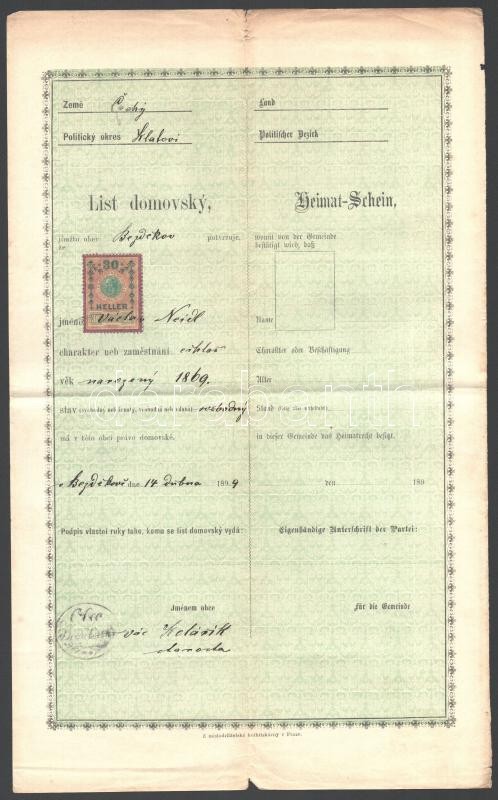 Země Čechy
Politický okres Klatovi
List domovský,
jímžto obec Bezděkov potvrzuje,
že
30
HELLER
jméno Václav Neidl
charakter neb zaměstnání
věk narozený 1869.
stav (svobodný neb ženatý, svobodná neb vdaná) svobodný
má v této obci právo domovské.
v Bezděkově dne 14 dubna 1899
Podpis vlastní ruky toho, komu se list domovský vydá:
Jménem obce
Vác
starosta
Land
Politischer Bezirk
Heimat-Schein,
womit von der Gemeinde
bestätigt wird, daß
Name
Charakter oder Beschäftigung
Alter
Stand (ledig oder verheiratet)
in dieser Gemeinde das Heimatrecht besitzt.
den 189
Eigenhändige Unterschrift der Partei:
Für die Gemeinde
Z místodržitelské knihtiskárny v Praze.
darabanth